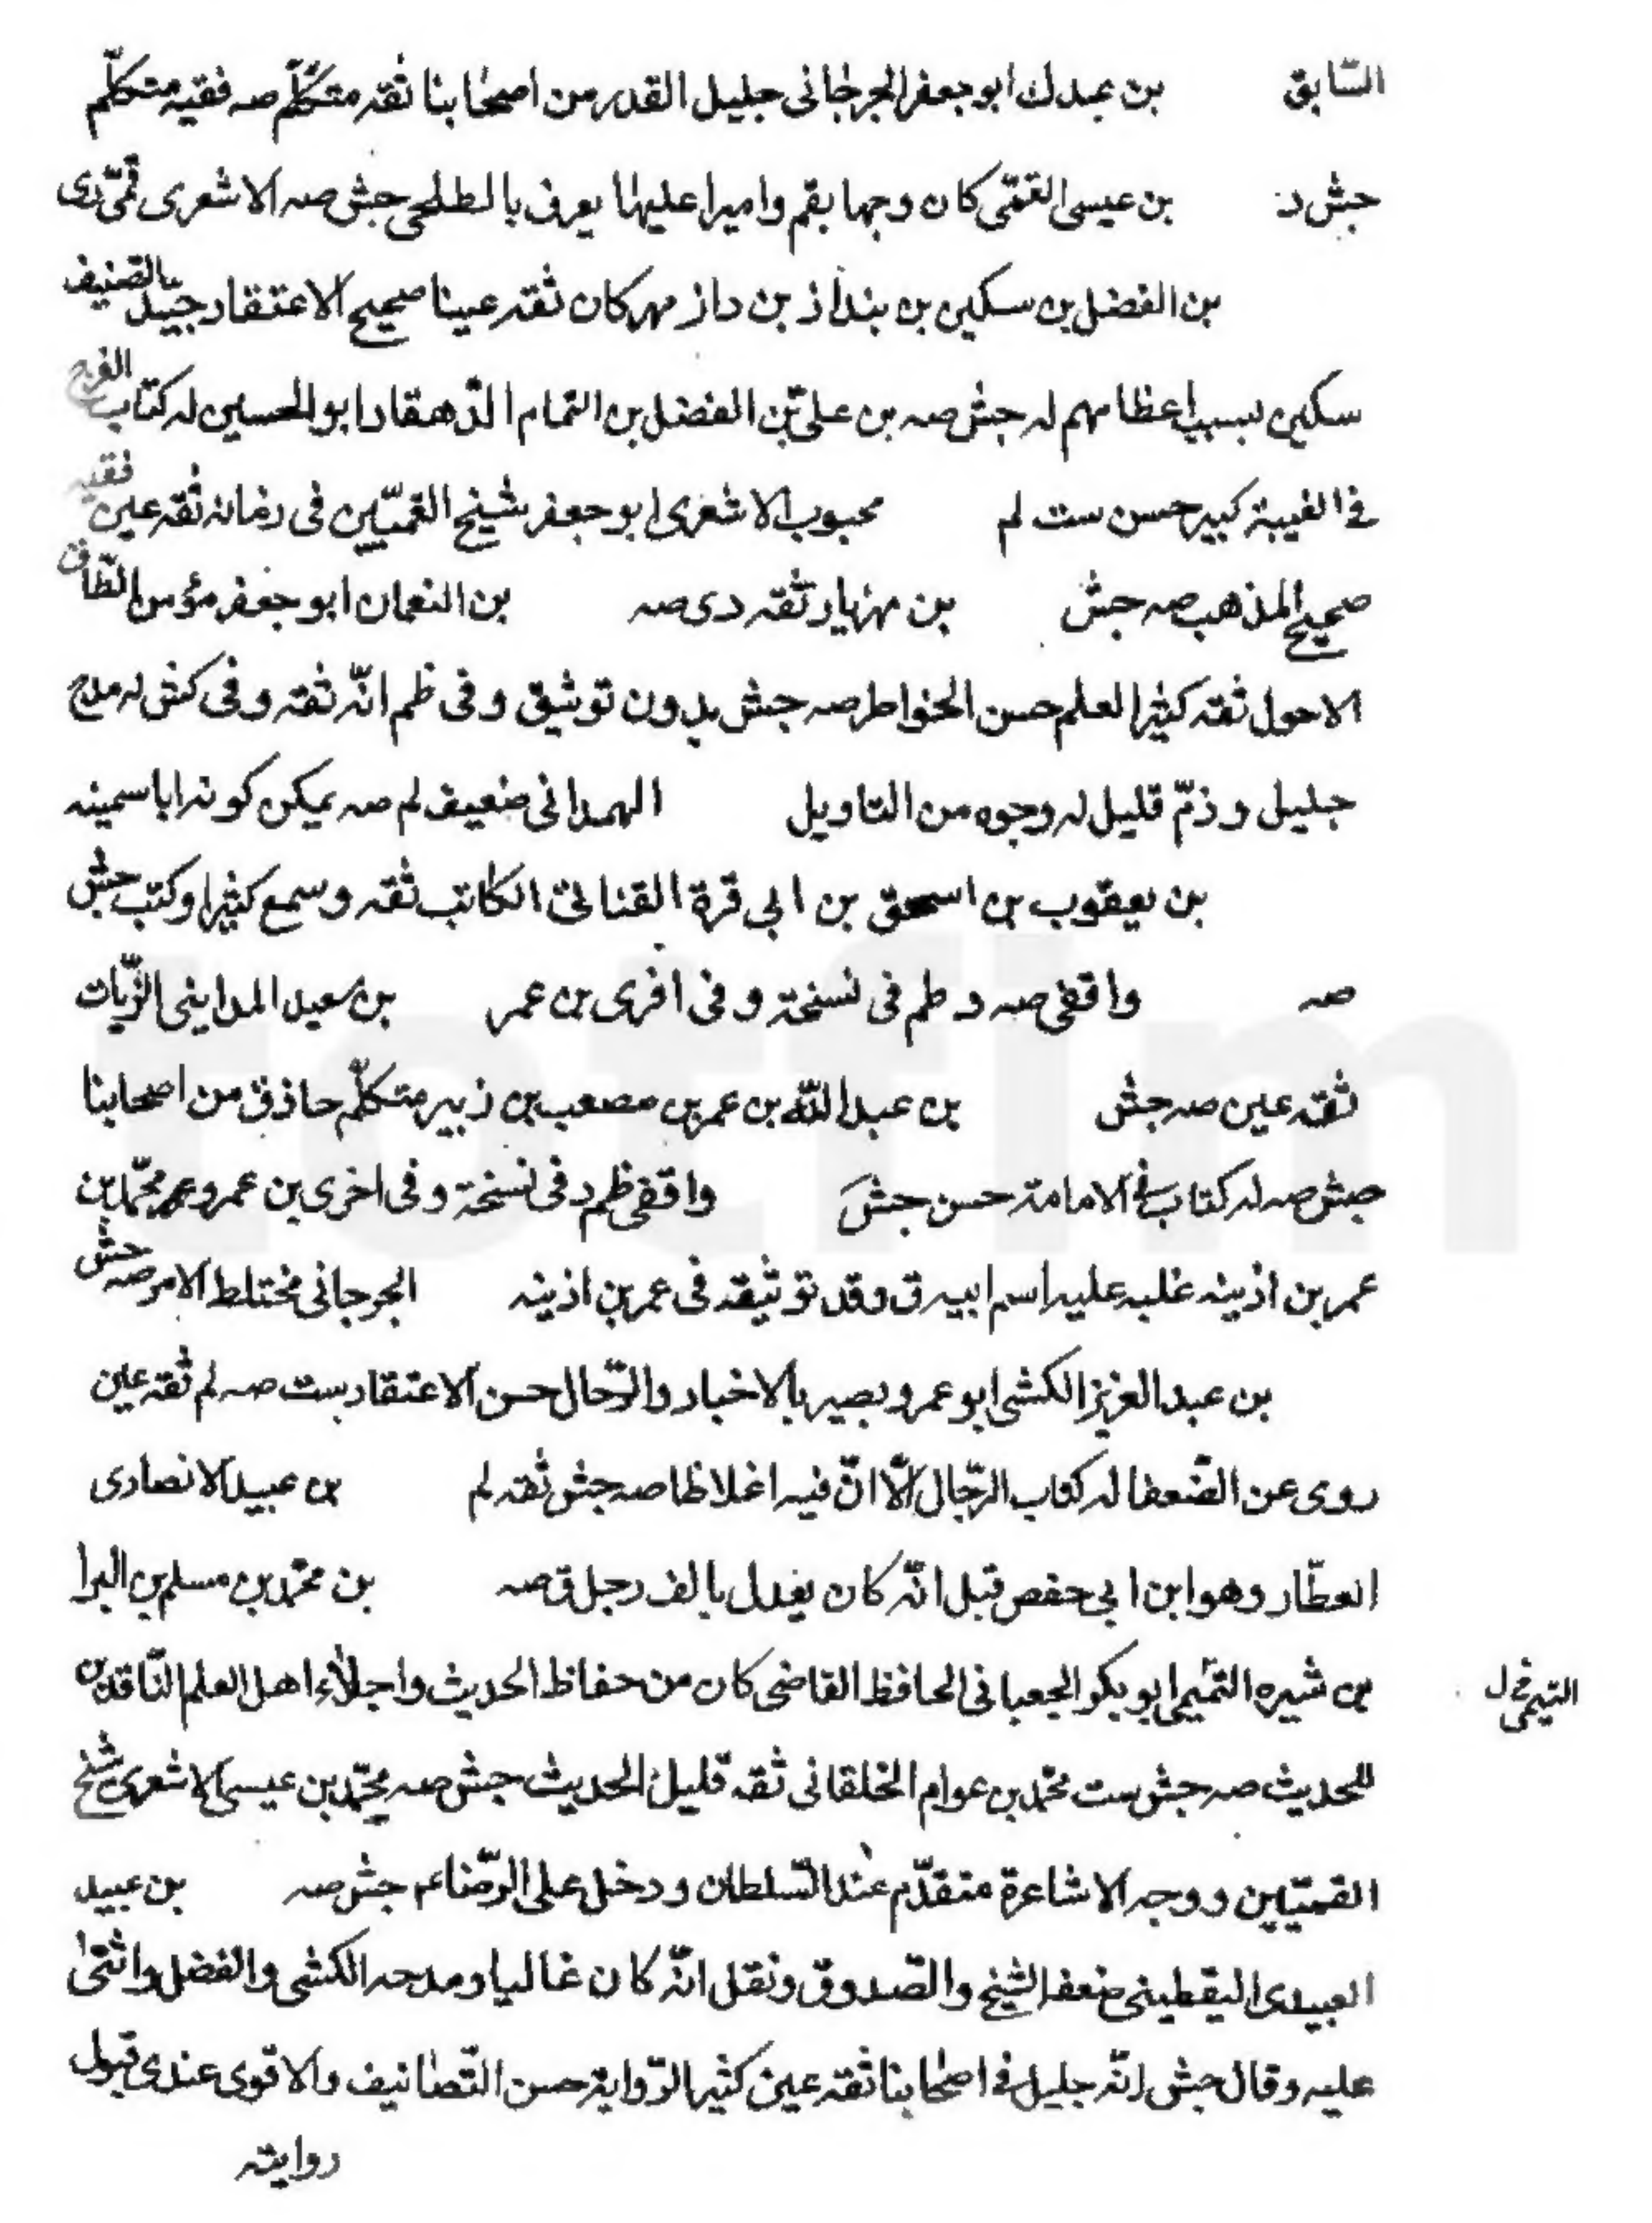 السّابق بن عبدك ابو جعفر الجرجانى جليل القدر من اصحابنا ثقه متكلّم صه فقيه متكلّم
جش د بن عيسى القمّى كان وجها بقم واميرا عليها يعرف بالطلحى جش صه الاشعرى قمّى دى
بن الفضل بن سكين بن بنداذ بن داز مهر كان ثقه عينا صحيح الاعتقاد جيّد التصنيف
سكين بسبب اعظامهم له جش صه بن علىّ بن الفضل بن التمام الدّهقاد ابو الحسين له كتاب الفرج
فى الغيبة كبير حسن ست لم محبوب الاشعرى ابو جعفر شيخ القميّين فى زمانه ثقه عين فقيه
صحيح المذهب صه جش بن مهزيار ثقه دى صه بن النعمان ابو جعفر مؤمن الطّاق
الاحول ثقه كثير العلم حسن الخواطر صه جش بدون توثيق وفى ظم انّه ثقه وفى كش له مدح
جليل وذمّ قليل له وجوه من التاويل الهمدانى ضعيف لم صه يمكن كونه ابا سمينه
بن يعقوب بن اسحق بن ابى قرة القنانى الكاتب ثقه وسمع كثيرا وكتب جش
صه واقفى صه د ظم فى نسخة وفى اخرى بن عمر بن سعيد المداينى الزّيات
ثقه عين صه جش بن عبد اللّه بن عمر بن مصعب بن زبير متكلّم حاذق من اصحابنا
جش صه له كتاب فى الامامة حسن جش واقفى ظم د فى نسخة وفى اخرى بن عمرو عمر محمّد بن
عمر بن اذينه غلبه عليه اسم ابيه ق وقد توثيقه فى عمر بن اذينه الجرجانى مختلط الامر صه جش
بن عبد العزيز الكشى ابو عمرو بصير بالاخبار والرّجال حسن الاعتقاد ست صه لم ثقه عين
روى عن الضّعفا له كتاب الرّجال الّا انّ فيه اغلاظا صه جش ثقه لم بن عبيد الانصارى
العطّار وهو ابن ابى حفص قبل انّه كان يعدل بالف رجل ق صه بن محمّد بن مسلم بن البرا
بن شيره التميمى ابو بكر الجعبانى الحافظ القاضى كان من حفاظ الحديث واجلاء اهل العلم النّاقدين
التيمى فى ل
للحديث صه جش ست محمّد بن عوام الخلقانى ثقه قليل الحديث جش صه محمّد بن عيسى الاشعرى شيخ
القميّيين ووجه الاشاعرة متقدّم عند السّلطان ودخل على الرّضا عم جش صه بن عبيد
العبيدى اليقطينى ضعفه الشيخ والصّدوق ونقل انّه كان غاليا ومدحه الكشى والفضل واثنى
عليه وقال جش انّه جليل فى اصحابنا ثقه عين كثير الرّواية حسن التّصانيف والاقوى عندى قبول
روايته